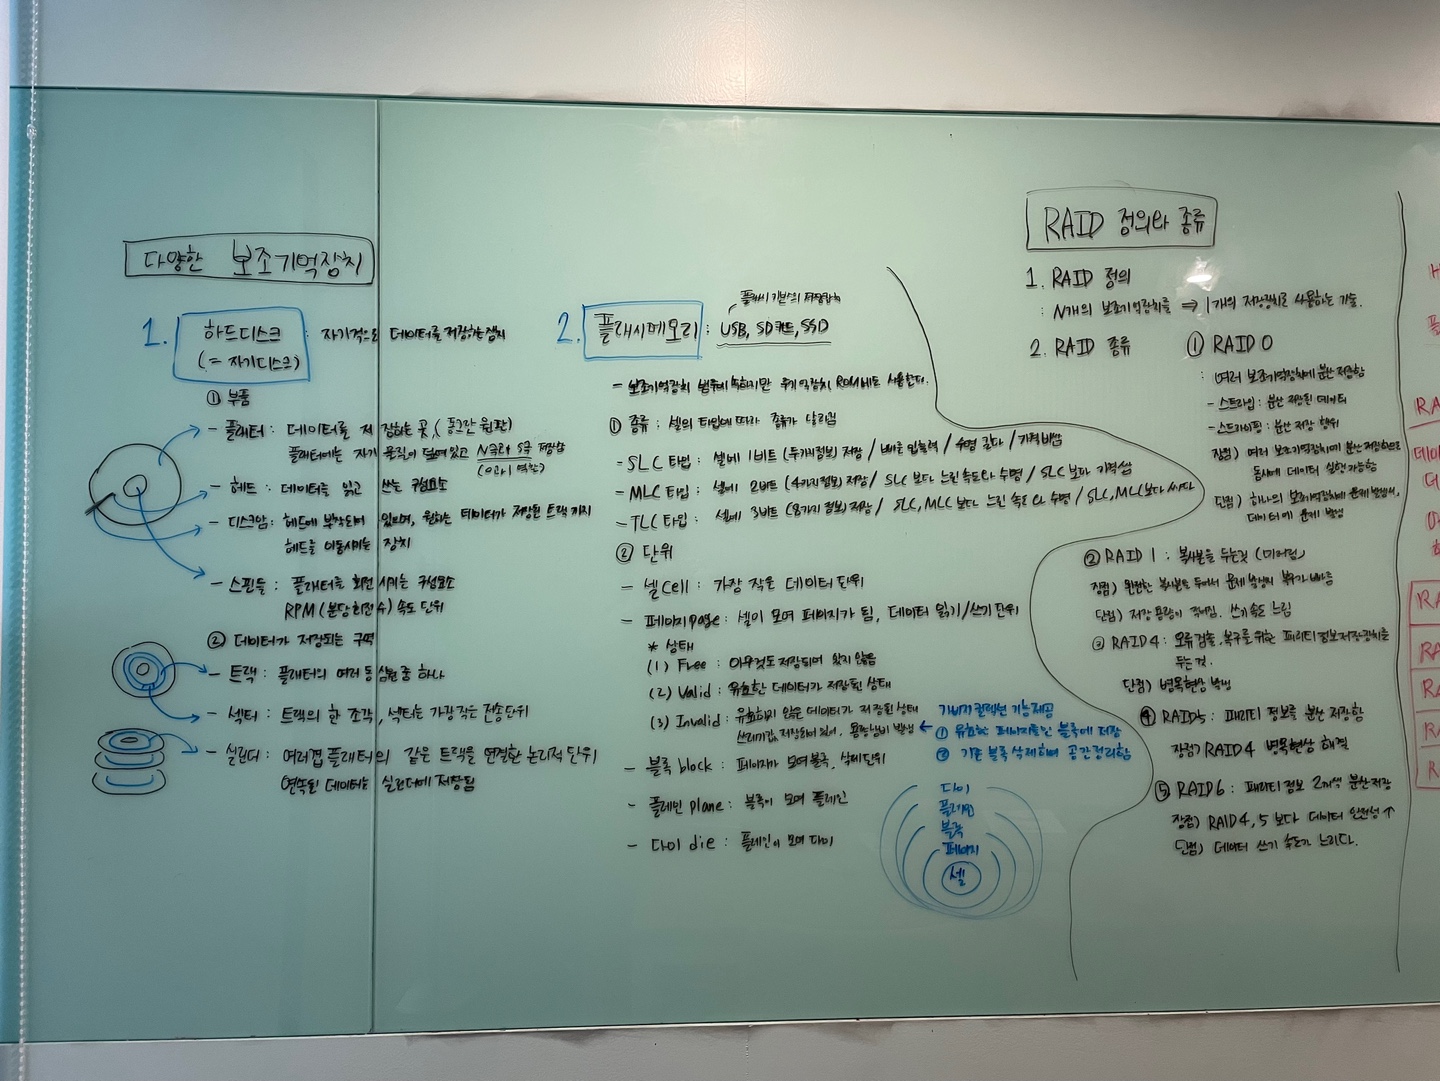 다양한 보조기억장치
1. 하드디스크 : 자기적으로 데이터를 저장하는 장치
(= 자기디스크)
① 부품
- 플래터 : 데이터를 저장하는 곳, (동그란 원판)
플래터에는 자기 물질이 덮여있고 N극과 S극 저장함
(0과 1 역할)
- 헤드 : 데이터를 읽고 쓰는 구성요소
- 디스크암 : 헤드에 부착되어 있으며, 원하는 데이터가 저장된 트랙까지
헤드를 이동시키는 장치
- 스핀들 : 플래터를 회전시키는 구성요소
RPM (분당회전수) 속도 단위
② 데이터가 저장되는 구역
- 트랙 : 플래터의 여러 동심원 중 하나
- 섹터 : 트랙의 한 조각, 섹터는 가장 작은 전송단위
- 실린더 : 여러겹 플래터의 같은 트랙을 연결한 논리적 단위
연속된 데이터는 실린더에 저장됨
플래시 기반의 저장장치
2. 플래시메모리 : USB, SD카드, SSD
- 보조기억장치 범주에 속하지만 주기억장치 ROM에도 사용한다.
① 종류 : 셀의 타입에 따라 종류가 나뉘어짐
- SLC 타입 : 셀에 1비트 (두가지정보) 저장 / 빠른 입출력 / 수명 길다 / 가격 비쌈
- MLC 타입 : 셀에 2비트 (4가지정보) 저장 / SLC 보다 느린 속도와 수명 / SLC 보다 가격 쌈
- TLC 타입 : 셀에 3비트 (8가지 정보) 저장 / SLC, MLC 보다 느린 속도와 수명 / SLC, MLC보다 싸다
② 단위
- 셀 cell : 가장 작은 데이터 단위
- 페이지 page : 셀이 모여 페이지가 됨, 데이터 읽기/쓰기 단위
* 상태
(1) Free : 아무것도 저장되어 있지 않음
(2) Valid : 유효한 데이터가 저장된 상태
(3) Invalid : 유효하지 않은 데이터가 저장된 상태
쓰레기값 저장되어 있어, 용량낭비 발생 ←
가비지 컬렉션 기능제공
① 유효한 페이지들만 블록에 저장
② 기존 블록 삭제하며 공간정리함
- 블록 block : 페이지가 모여 블록, 삭제단위
- 플레인 plane : 블록이 모여 플레인
- 다이 die : 플레인이 모여 다이
다이
플레인
블록
페이지
셀
RAID 정의와 종류
1. RAID 정의
: N개의 보조기억장치를 ⇒ 1개의 저장장치로 사용하는 기술.
2. RAID 종류 ① RAID 0
: 여러 보조기억장치에 분산 저장함
- 스트라입 : 분산 저장된 데이터
- 스트라이핑 : 분산 저장 행위
장점) 여러 보조기억장치에 분산 저장하므로
동시에 데이터 실행 가능함
단점) 하나의 보조기억장치에 문제 발생시,
데이터에 문제 발생
② RAID 1 : 복사본을 두는것 (미러링)
장점) 완전한 복사본을 두어서 문제 발생시 복구가 빠름
단점) 저장 용량이 적어짐. 쓰기 속도 느림
③ RAID 4 : 오류 검출, 복구를 위한 패리티 정보 저장장치를
두는 것.
단점) 병목현상 발생
④ RAID5 : 패리티 정보를 분산 저장함
장점) RAID 4 병목현상 해결
⑤ RAID 6 : 패리티 정보 2개씩 분산 저장
장점) RAID 4, 5 보다 데이터 안전성 ↑
단점) 데이터 쓰기 속도가 느리다.